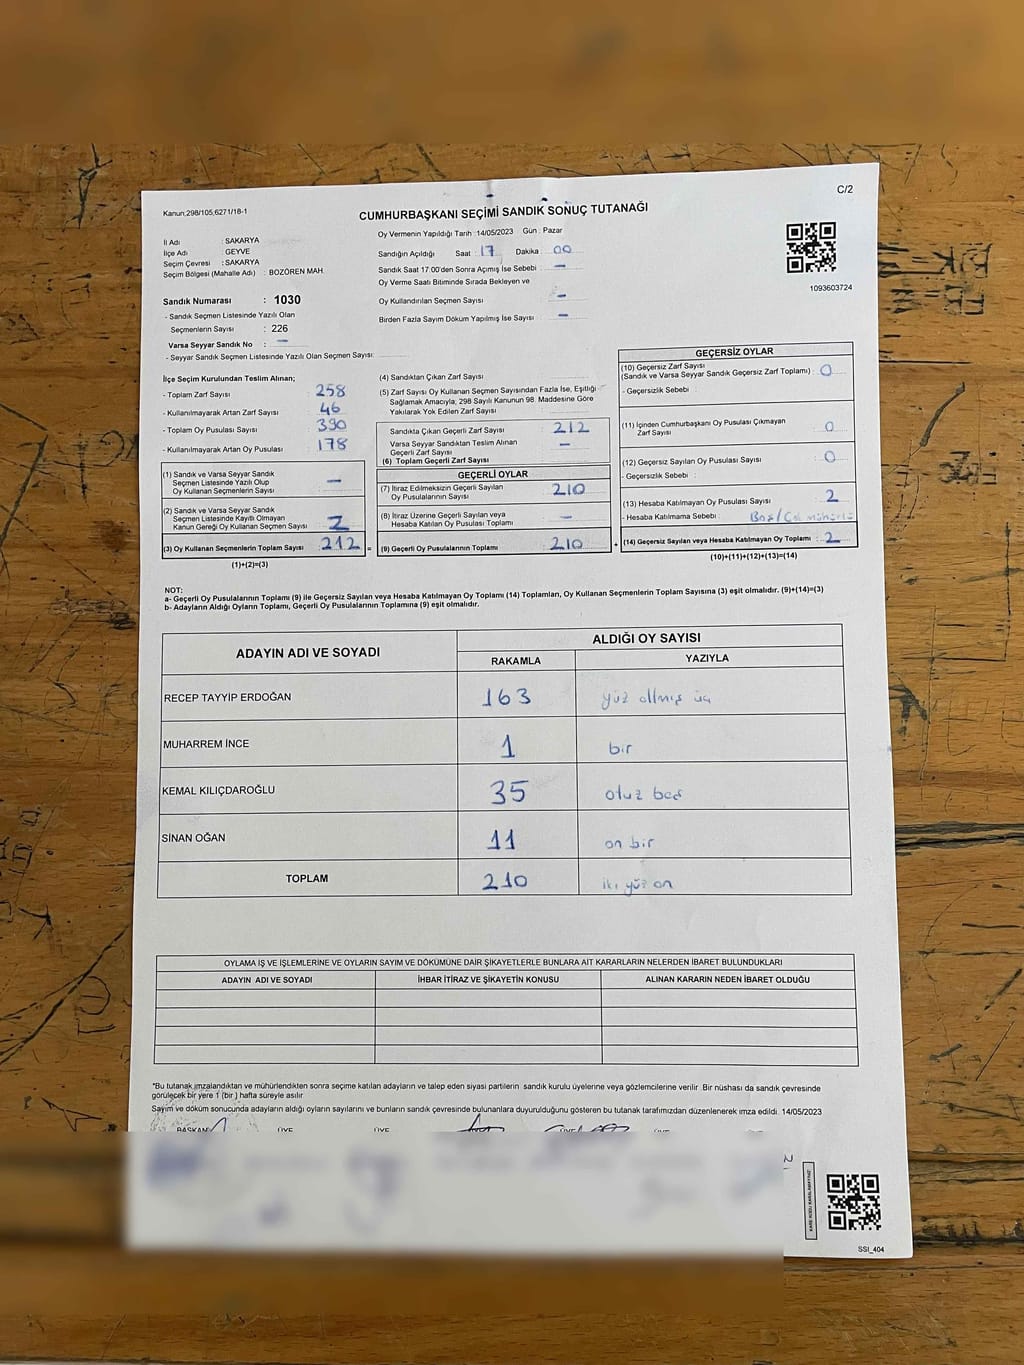 C/2
Kanun;298/105;6271/18-1
CUMHURBAŞKANI SEÇİMİ SANDIK SONUÇ TUTANAĞI
İl Adı : SAKARYA
İlçe Adı GEYVE
Seçim Çevresi : SAKARYA
Seçim Bölgesi (Mahalle Adı) : BOZÖREN MAH.
Oy Vermenin Yapıldığı Tarih :14/05/2023 Gün : Pazar
Sandığın Açıldığı Saat : 17 Dakika : 00
Sandık Saat 17:00'den Sonra Açımış İse Sebebi : –
Oy Verme Saati Bitiminde Sırada Bekleyen ve
Oy Kullandırılan Seçmen Sayısı : –
Birden Fazla Sayım Döküm Yapılmış İse Sayısı : –
1093603724
Sandık Numarası : 1030
- Sandık Seçmen Listesinde Yazılı Olan
Seçmenlerin Sayısı : 226
Varsa Seyyar Sandık No : –
- Seyyar Sandık Seçmen Listesinde Yazılı Olan Seçmen Sayısı:
İlçe Seçim Kurulundan Teslim Alınan;
- Toplam Zarf Sayısı : 258
- Kullanılmayarak Artan Zarf Sayısı : 46
- Toplam Oy Pusulası Sayısı : 390
- Kullanılmayarak Artan Oy Pusulası : 178
(1) Sandık ve Varsa Seyyar Sandık
Seçmen Listesinde Yazılı Olup
Oy Kullanan Seçmenlerin Sayısı : –
(2) Sandık ve Varsa Seyyar Sandık
Seçmen Listesinde Kayıtlı Olmayan
Kanun Gereği Oy Kullanan Seçmen Sayısı : 2
(3) Oy Kullanan Seçmenlerin Toplam Sayısı : 212
(1)+(2)=(3)
(4) Sandıktan Çıkan Zarf Sayısı :
(5) Zarf Sayısı Oy Kullanan Seçmen Sayısından Fazla İse, Eşitliği
Sağlamak Amacıyla; 298 Sayılı Kanunun 98. Maddesine Göre
Yakılarak Yok Edilen Zarf Sayısı :
Sandıkta Çıkan Geçerli Zarf Sayısı : 212
Varsa Seyyar Sandıktan Teslim Alınan
Geçerli Zarf Sayısı : –
(6) Toplam Geçerli Zarf Sayısı
GEÇERLİ OYLAR
(7) İtiraz Edilmeksizin Geçerli Sayılan
Oy Pusulalarının Sayısı : 210
(8) İtiraz Üzerine Geçerli Sayılan veya
Hesaba Katılan Oy Pusulası Toplamı : –
= (9) Geçerli Oy Pusulalarının Toplamı : 210 +
GEÇERSİZ OYLAR
(10) Geçersiz Zarf Sayısı
(Sandık ve Varsa Seyyar Sandık Geçersiz Zarf Toplamı) : 0
- Geçersizlik Sebebi :
(11) İçinden Cumhurbaşkanı Oy Pusulası Çıkmayan
Zarf Sayısı : 0
(12) Geçersiz Sayılan Oy Pusulası Sayısı : 0
- Geçersizlik Sebebi :
(13) Hesaba Katılmayan Oy Pusulası Sayısı : 2
- Hesaba Katılmama Sebebi : Boş/Çok mühürlü
(14) Geçersiz Sayılan veya Hesaba Katılmayan Oy Toplamı : 2
(10)+(11)+(12)+(13)=(14)
NOT:
a- Geçerli Oy Pusulalarının Toplamı (9) ile Geçersiz Sayılan veya Hesaba Katılmayan Oy Toplamı (14) Toplamları, Oy Kullanan Seçmenlerin Toplam Sayısına (3) eşit olmalıdır. (9)+(14)=(3)
b- Adayların Aldığı Oyların Toplamı, Geçerli Oy Pusulalarının Toplamına (9) eşit olmalıdır.
ADAYIN ADI VE SOYADI ALDIĞI OY SAYISI
RAKAMLA YAZIYLA
RECEP TAYYİP ERDOĞAN 163 yüz altmış üç
MUHARREM İNCE 1 bir
KEMAL KILIÇDAROĞLU 35 otuz beş
SİNAN OĞAN 11 on bir
TOPLAM 210 iki yüz on
OYLAMA İŞ VE İŞLEMLERİNE VE OYLARIN SAYIM VE DÖKÜMÜNE DAİR ŞİKAYETLERLE BUNLARA AİT KARARLARIN NELERDEN İBARET BULUNDUKLARI
ADAYIN ADI VE SOYADI İHBAR İTİRAZ VE ŞİKAYETİN KONUSU ALINAN KARARIN NEDEN İBARET OLDUĞU
"Bu tutanak imzalandıktan ve mühürlendikten sonra seçime katılan adayların ve talep eden siyasi partilerin sandık kurulu üyelerine veya gözlemcilerine verilir. Bir nüshası da sandık çevresinde
görülecek bir yere 1 (bir) hafta süreyle asılır
Sayım ve döküm sonucunda adayların aldığı oyların sayılarını ve bunların sandık çevresinde bulunanlara duyurulduğunu gösteren bu tutanak tarafımızdan düzenlenerek imza edildi. 14/05/2023
BAŞKAN ÜYE ÜYE
SSİ_404